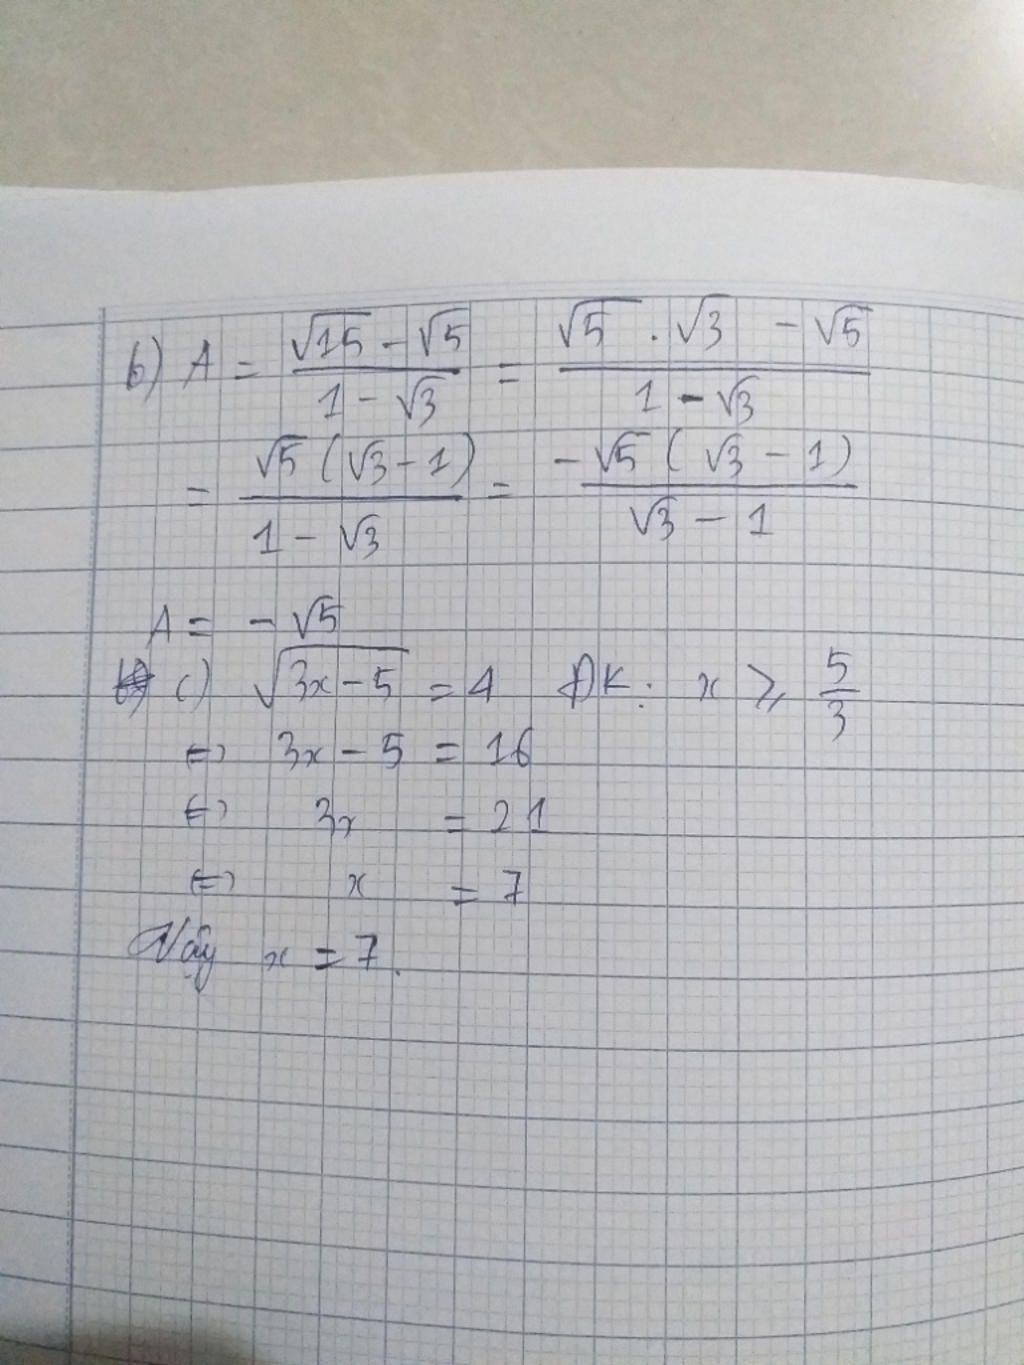 b) A = (√15 - √5)/(1 - √3) = (√5 . √3 - √5)/(1 - √3)
= (√5 (√3 - 1))/(1 - √3) = (-√5 (√3 - 1))/(√3 - 1)
A = - √5
c) √(3x - 5) = 4 ĐK: x ⩾ 5/3
⇔ 3x - 5 = 16
⇔ 3x = 21
⇔ x = 7
Vậy x = 7.